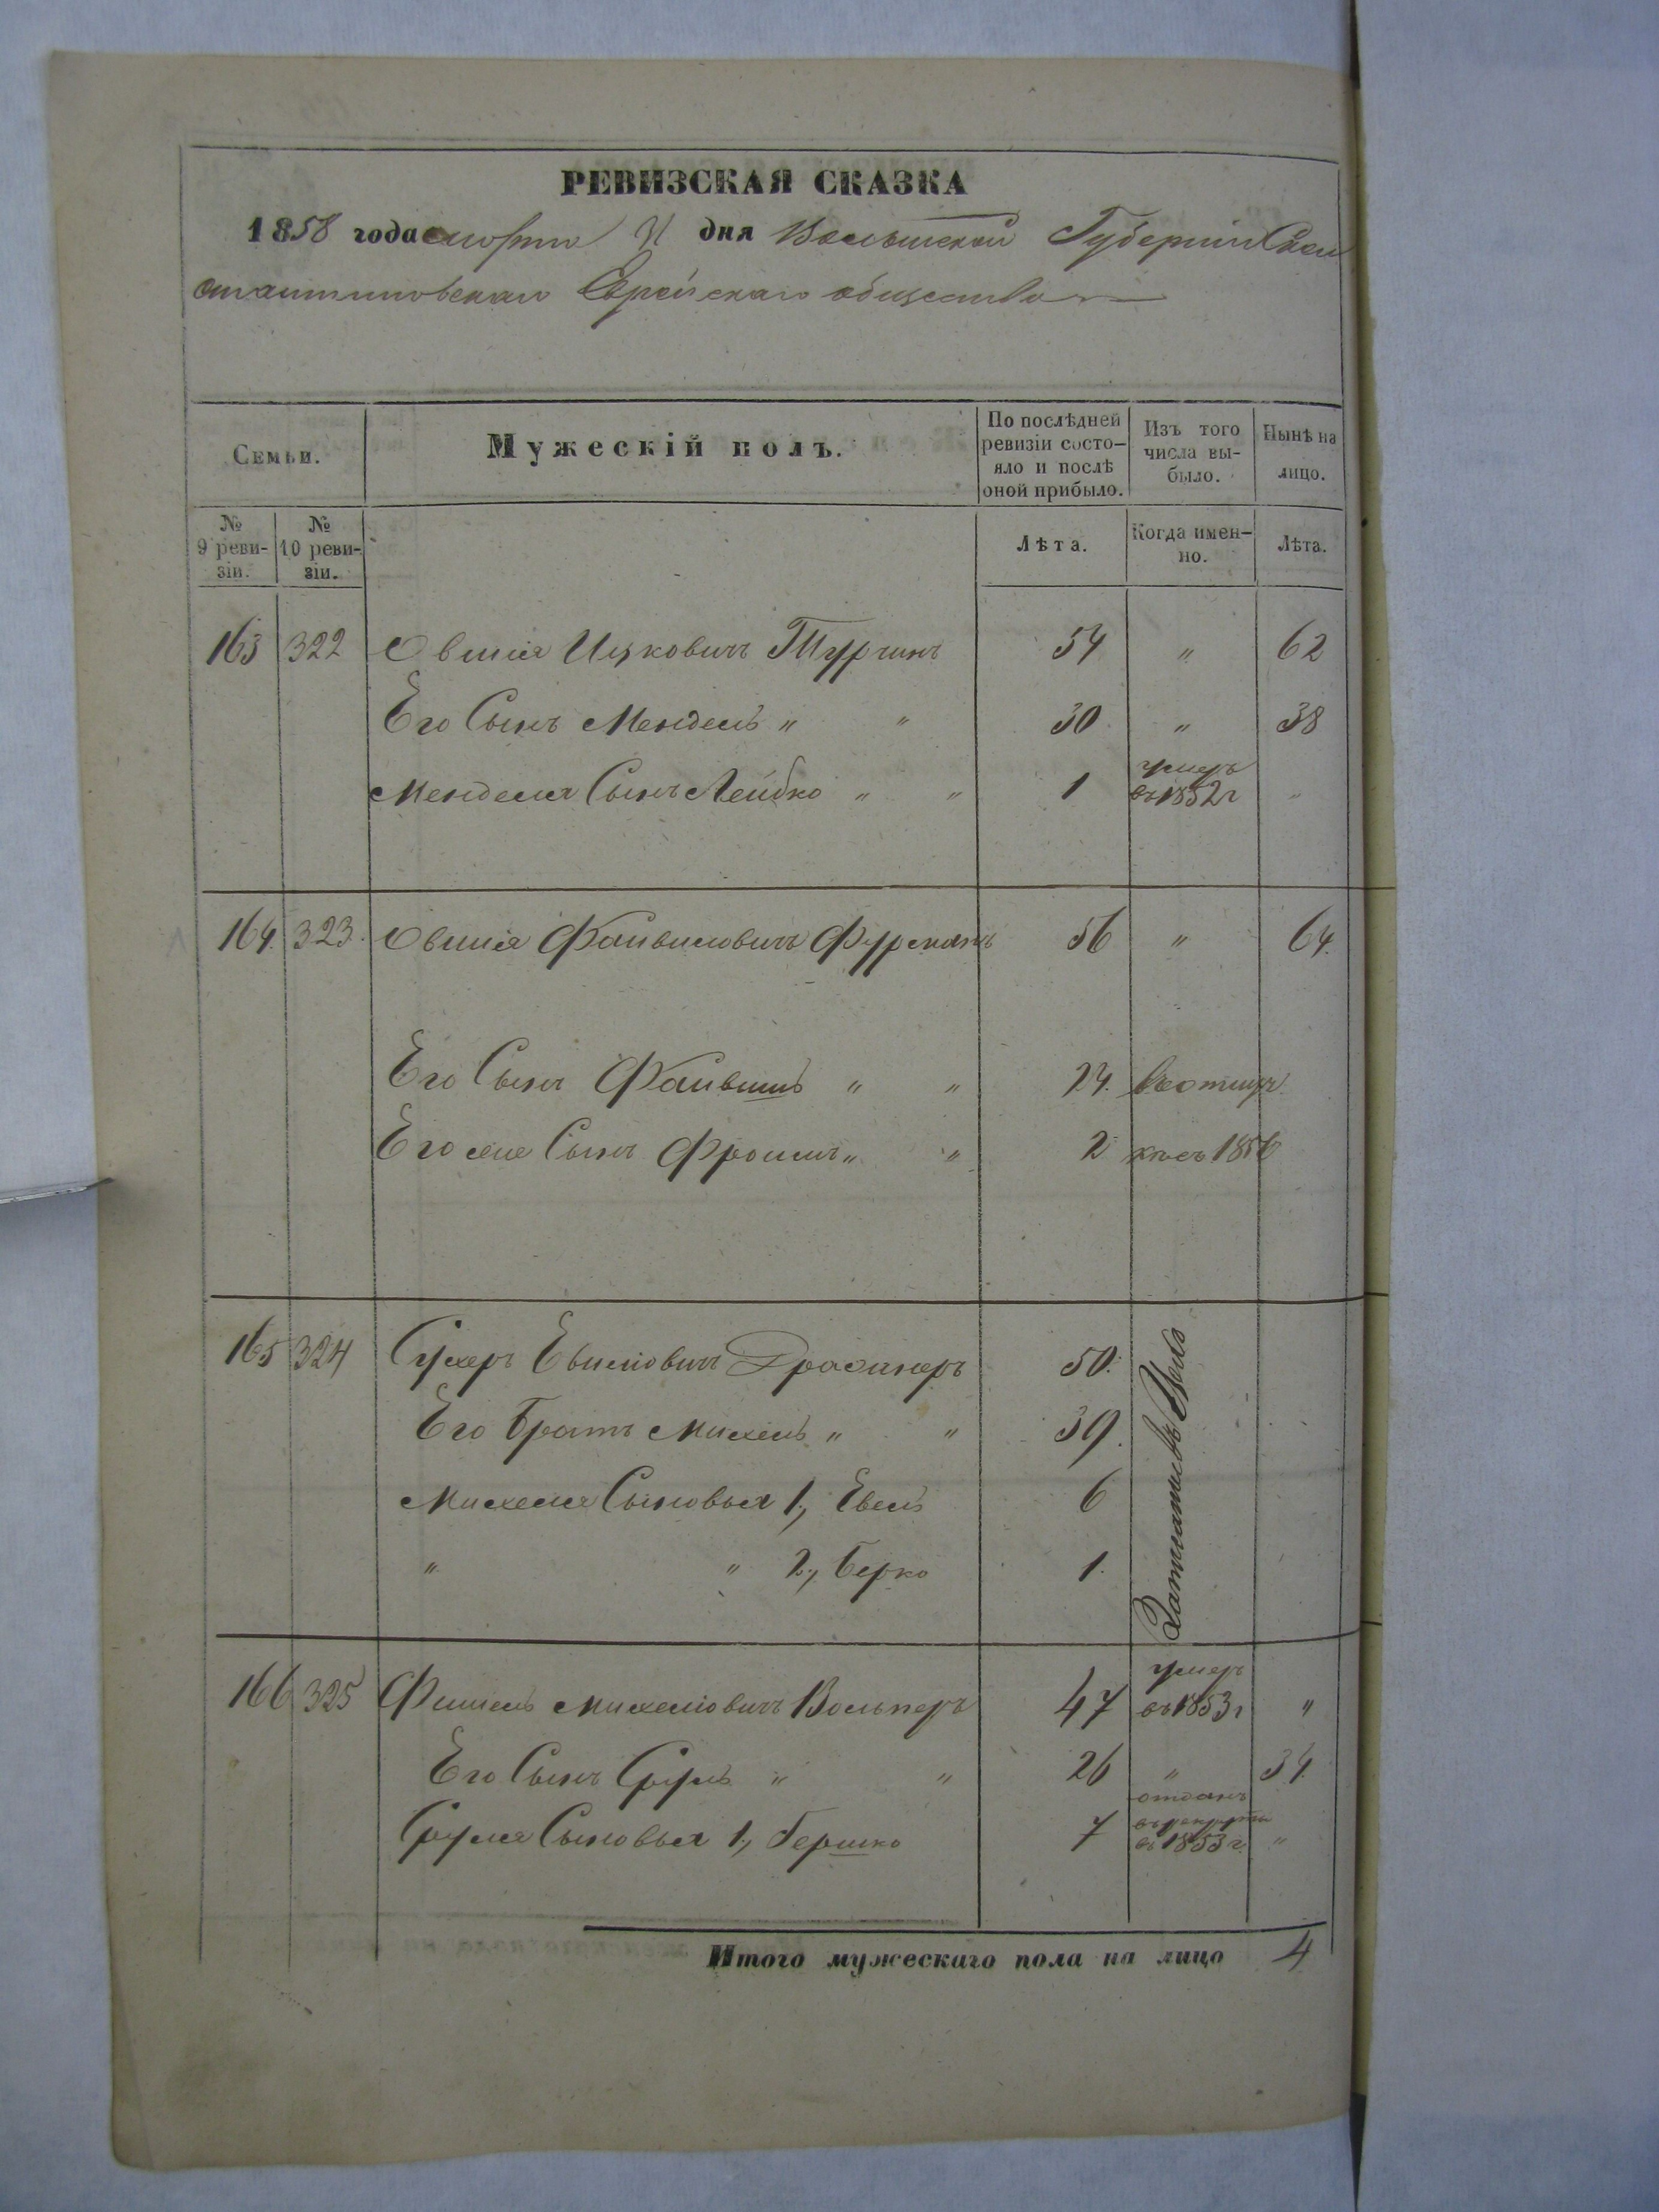 РЕВИЗСКАЯ СКАЗКА
1858 года марта дня Волынской Губерніи Старо
константиновскаго Еврейскаго общества
Семьи.
Мужескій полъ.
По послѣдней ревизіи состо-
яло и послѣ
оной прибыло.
Изъ того
числа вы-
было.
Нынѣ на
лицо.
№ 9 реви-
зіи.
№ 10 реви-
зіи.
Лѣта.
Когда имен-
но.
Лѣта.
163 322 Овшія Ицковичъ Турчинъ 54 " 62
Его Сынъ Мендель " " 30 " 38
Менделя Сынъ Лейбко " " 1 умеръ въ 1852 г "
164. 323. Овшія Файвишовичъ Фурманъ 56 " 64.
Его Сынъ Файвишъ " " 24.
Его же Сынъ Фроимъ " " 2 съ 1856
165 324 Сухеръ Евелиовичъ 50.
Его Братъ Михель " " 39.
Михеля Сыновья 1, Евель 6
" " 2, Берко 1.
166 325 Фишель Михеліовичъ Вольперъ 47 умеръ въ 1853 г "
Его Сынъ Сруль " " 26 " 34.
Сруля Сыновья 1, Гершко 7 отданъ въ рекруты въ 1853 г. "
Итого мужескаго пола на лицо 4